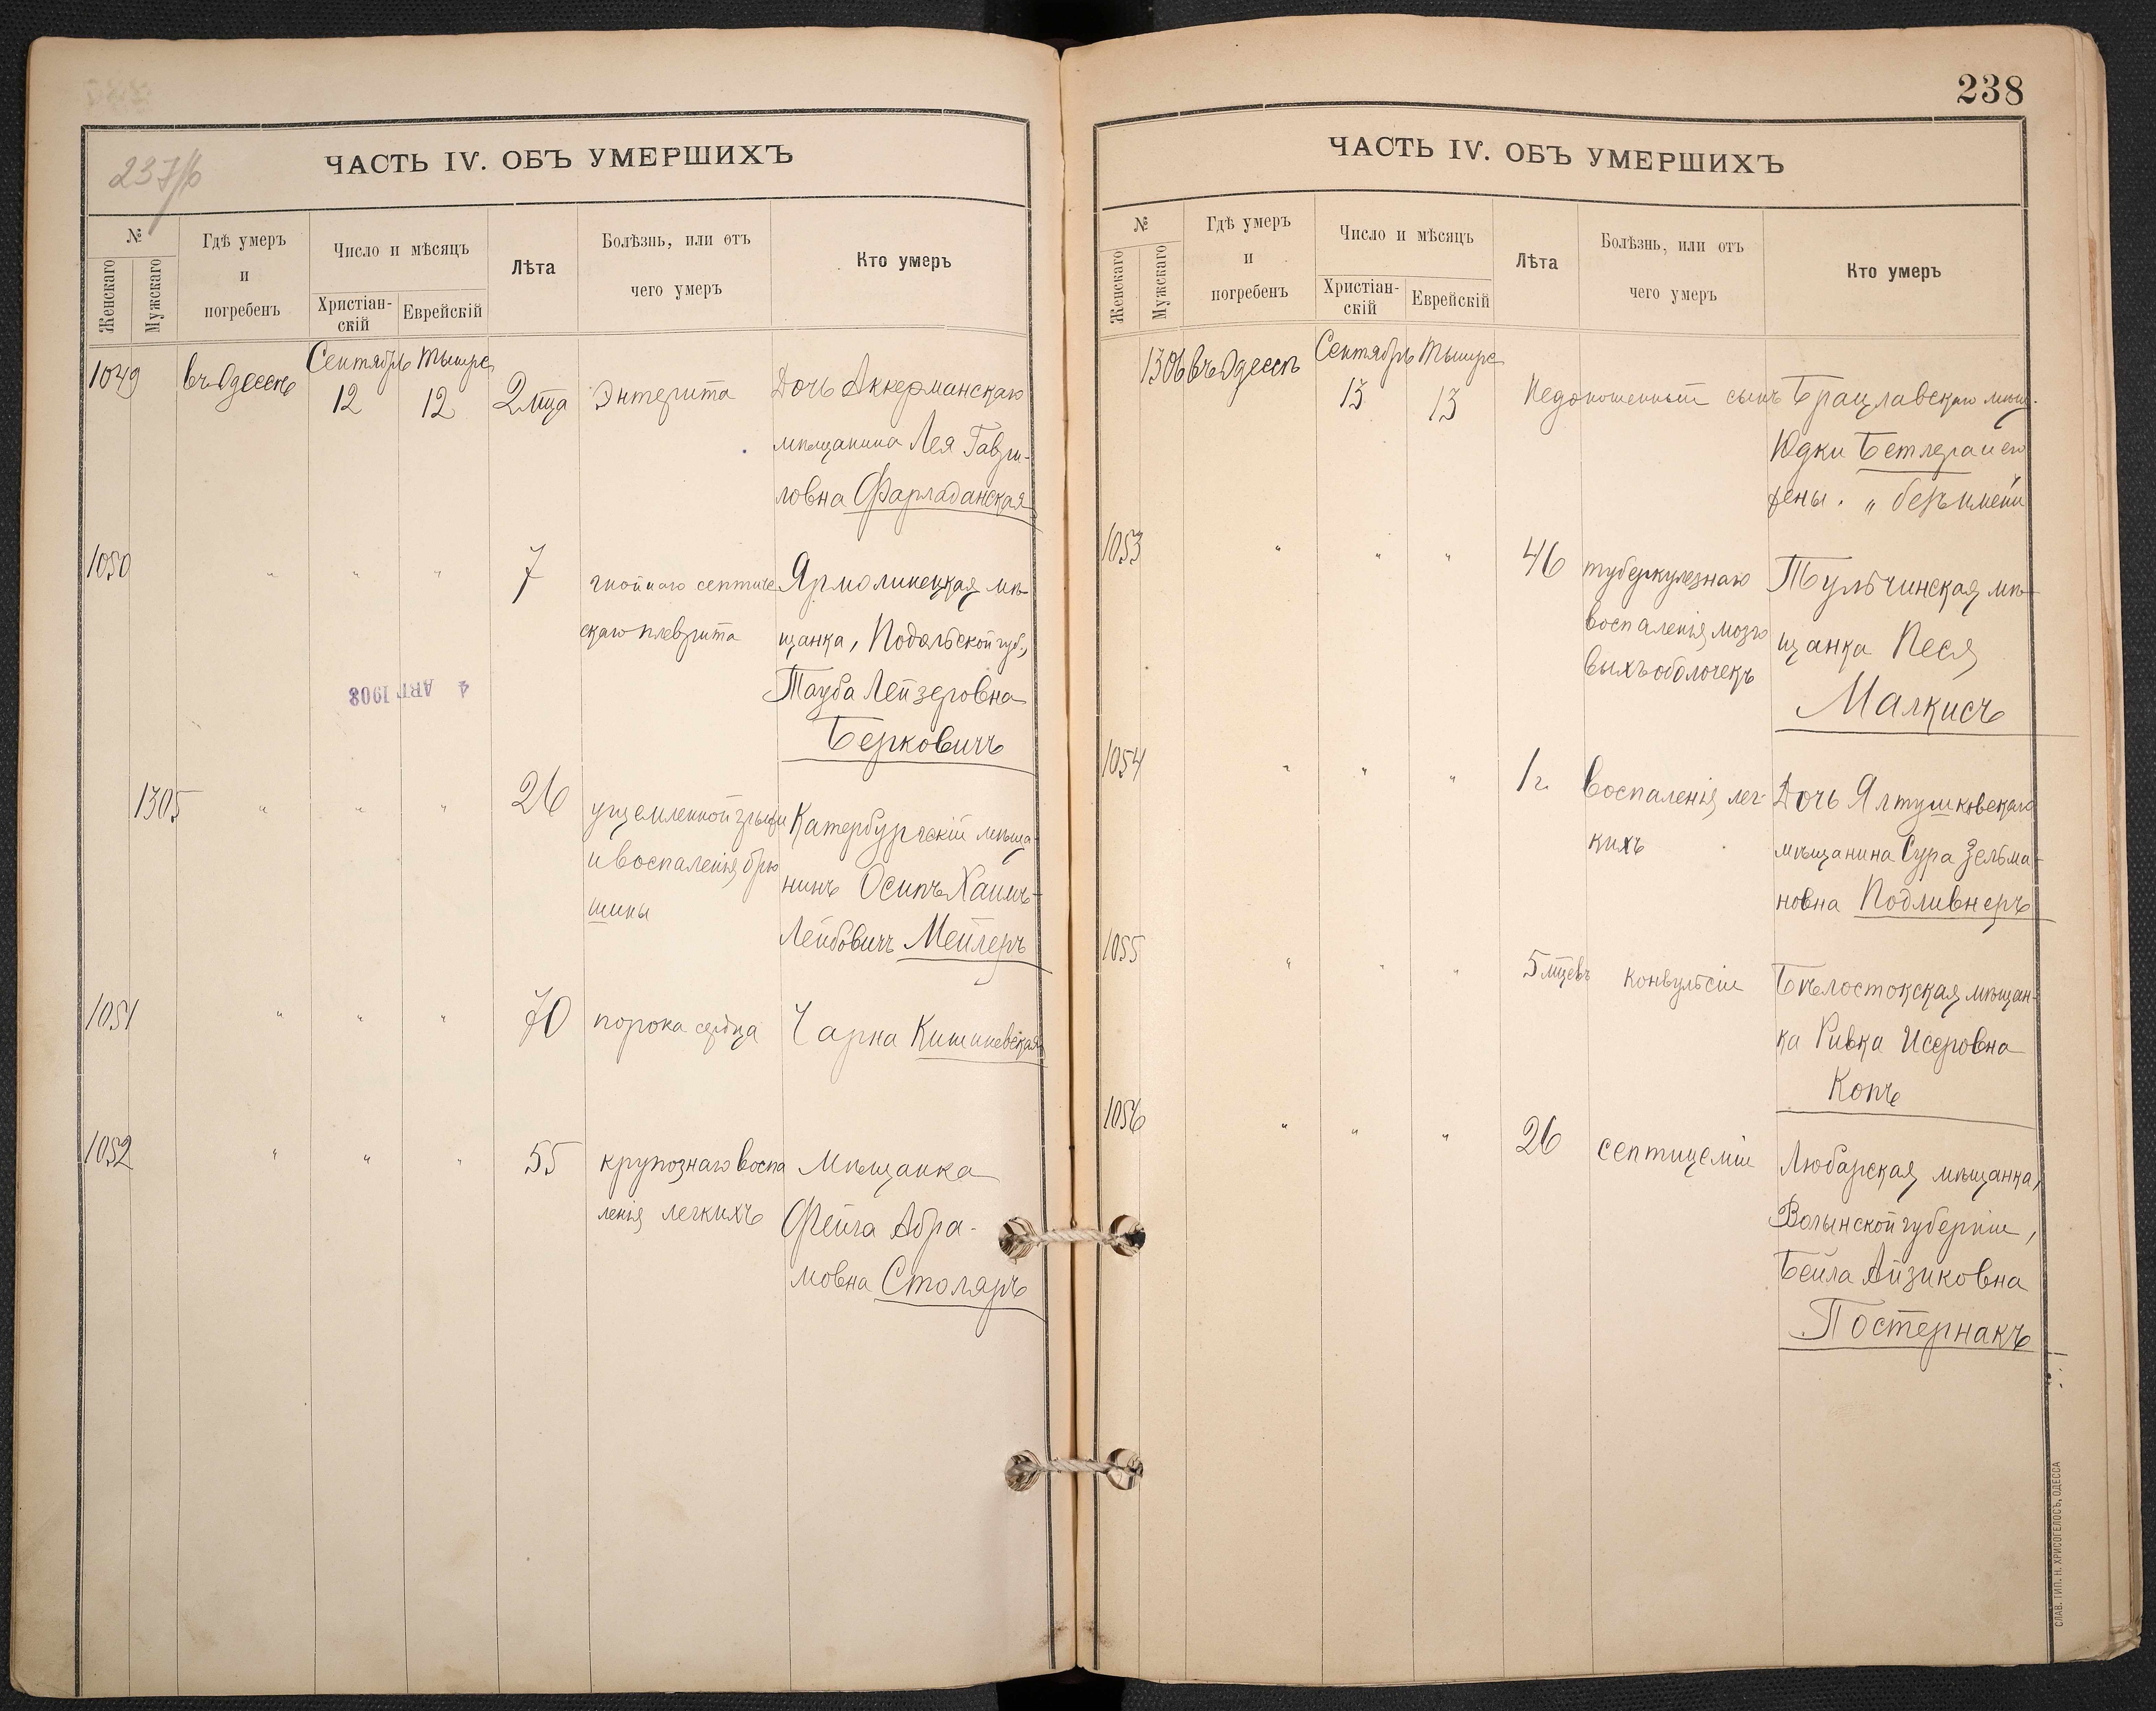 237/б
ЧАСТЬ IV. ОБЪ УМЕРШИХЪ
№
Женскаго
Мужскаго
Гдѣ умеръ
и
погребенъ
Число и мѣсяцъ
Христіан-
скій
Еврейскій
Лѣта
Болѣзнь, или отъ
чего умеръ
Кто умеръ
Сентябрь Тышре
1049 въ Одессѣ 12 12 2 мца Энтерита Дочь Аккерманскаго
мѣщанина Лея Гаври-
ловна Фарладанская
1050 " " " 7 гнойнаго септиче Ярмолинецкая мѣ-
скаго плеврита щанка, Подольской губ.,
Тауба Лейзеровна
Берковичъ
4 АВГ 1903
1305 " " " 26 ущемленной грыжи Катербургскій мѣща-
и воспаленія брю нинъ Осипъ Хаимъ-
шины Лейбовичъ Мейлеръ
1051 " " " 70 порока сердца Чарна Кишиневская
1052 " " " 55 крупознаго воспа Мѣщанка
ленія легкихъ Фейга Абра-
мовна Столяръ
238
ЧАСТЬ IV. ОБЪ УМЕРШИХЪ
№
Женскаго
Мужскаго
Гдѣ умеръ
и
погребенъ
Число и мѣсяцъ
Христіан-
скій
Еврейскій
Лѣта
Болѣзнь, или отъ
чего умеръ
Кто умеръ
Сентябрь Тышре
1306 въ Одессѣ 13 13 Недоношенный сынъ Брацлавскаго мѣщ.
Юдки Бетлера и его
жены. " безъ имени
1053 " " " 46 туберкулезнаго Тульчинская мѣ-
воспаленія мозго щанка Песя
выхъ оболочекъ Малкисъ
1054 " " " 1 г. воспаленія лег- Дочь Ялтушковскаго
кихъ мѣщанина Сура Зельма-
новна Подливнеръ
1055 " " " 5 мцевъ конвульсіи Бѣлостокская мѣщан-
ка Ривка Исеровна
Копъ
1056 " " " 26 септицеміи Любарская мѣщанка,
Волынской губерніи,
Бейла Айзиковна
Постернакъ
СЛАВ. ТИП. Н. ХРИСОГЕЛОСЪ, ОДЕССА